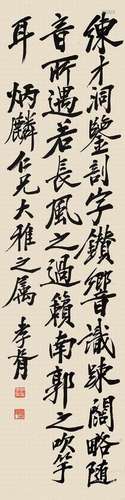 練才洞鑒剖字鑽響識疎闊略隨
音所遇若長風之過籟南郭之吹竽
耳 炳麟仁兄大雅之属 孝胥